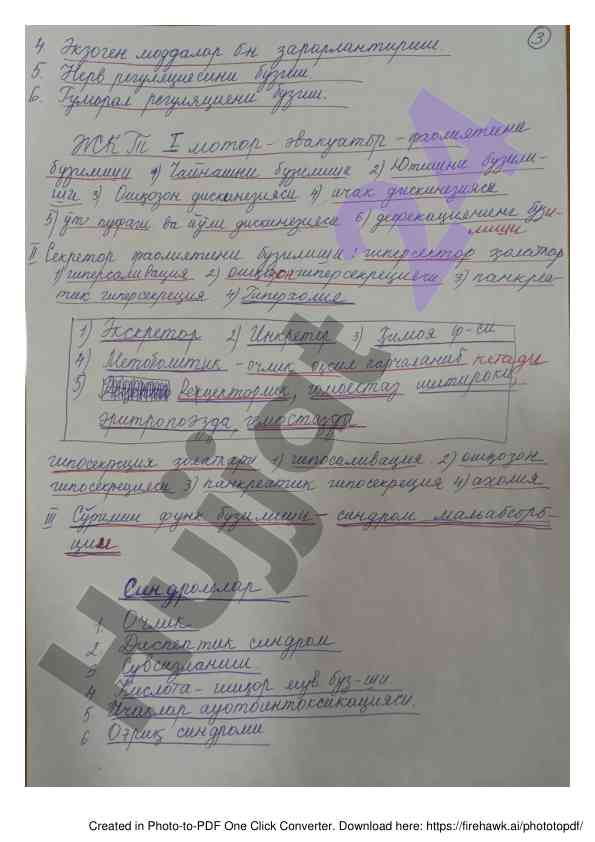 3
4. Экзоген моддалар бн зарарлантириш.
5. Нерв регуляциесини бузиш.
6. Гуморал регуляцияни бузиш.
ЖКТ I мотор-эвакуатор-фаолиятини
бузилиши 1) Чайнашни бузилиши 2) Ютишни бузили-
ши 3) Ошқозон дискинезияси 4) ичак дискинезияси
5) ўт пуфаги ва йўли дискинезияси 6) дефекациянинг бузи-
лиши
II Секретор фаолиятини бузилиши: гиперсектор холатлар
1) гиперсаливация 2) ошқозон гиперсекрецияси 3) панкреа-
тик гиперсекреция 4) Гиперхолия
1) Экскретор 2) Инкретор 3) Ҳимоя ф-си
4) Метоболитик - очлик оқсил парчаланиб кетади
5) Рецепторлик, гомеостаз иштироки,
эритропоэзда, гемостазда
гипосекреция холатлари 1) гипосаливация 2) ошқозон
гипосекрецияси 3) панкреатик гипосекреция 4) ахолия
III Сўрилиш функ бузилиши - синдром мальабсорб-
ции
Синдромлар
1. Очлик
2 Диспептик синдром
3 Сувсизланиш
4 Кислота-ишқор мув буз-ши
5 Ичаклар аутоинтоксикацияси.
6 Оғриқ синдроми
Hujjat 24
Created in Photo-to-PDF One Click Converter. Download here: https://firehawk.ai/phototopdf/